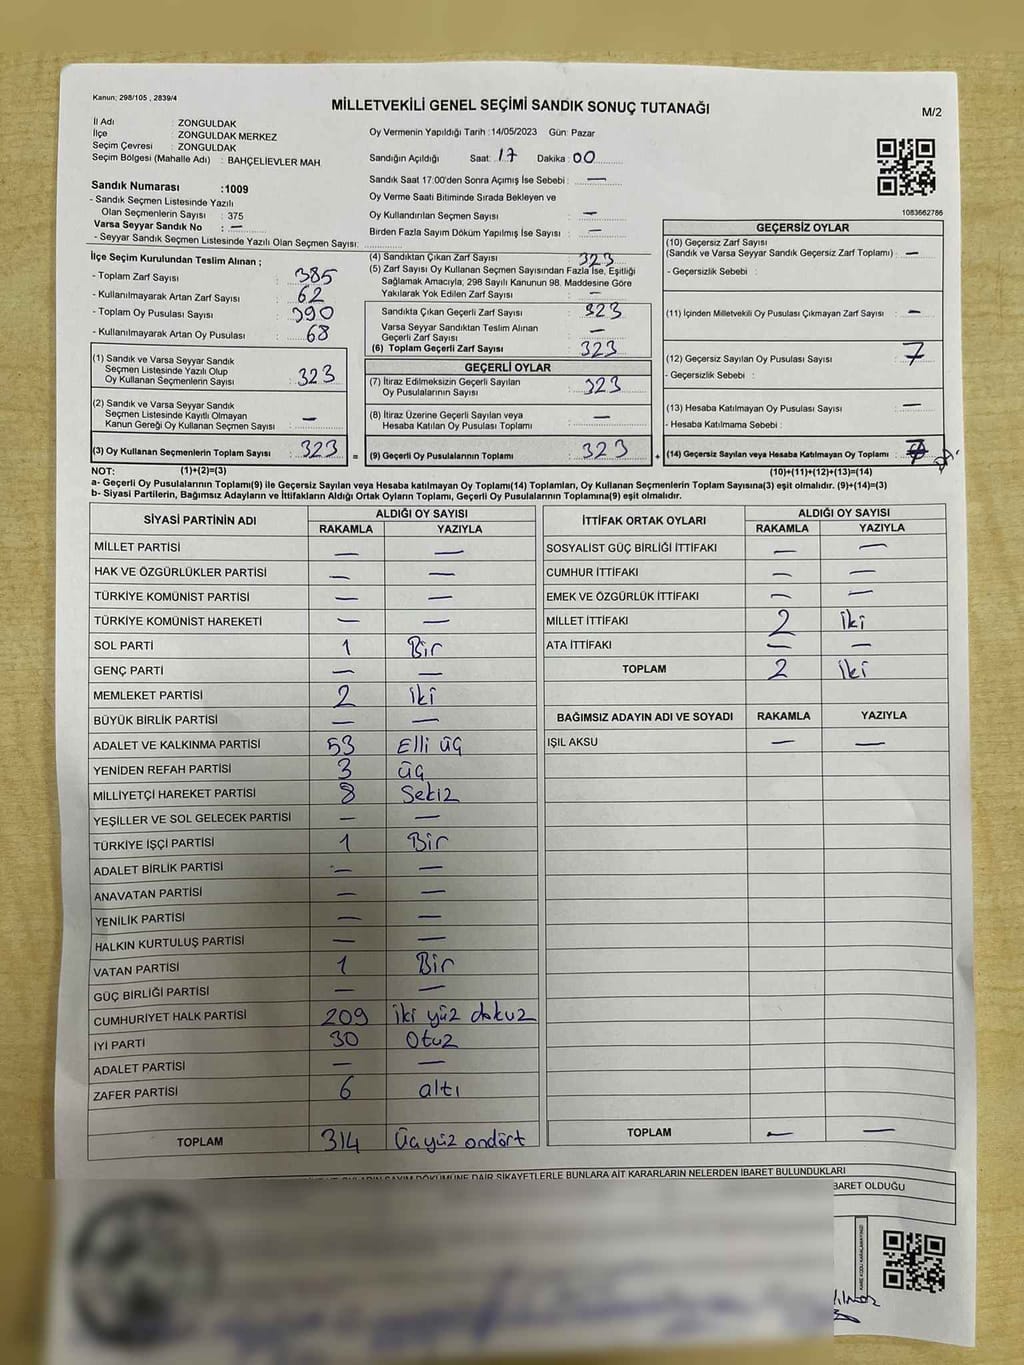 Kanun: 298/105 , 2839/4
MİLLETVEKİLİ GENEL SEÇİMİ SANDIK SONUÇ TUTANAĞI
M/2
İl Adı : ZONGULDAK
İlçe : ZONGULDAK MERKEZ
Seçim Çevresi : ZONGULDAK
Seçim Bölgesi (Mahalle Adı) : BAHÇELİEVLER MAH.
Oy Vermenin Yapıldığı Tarih :14/05/2023 Gün: Pazar
Sandığın Açıldığı Saat: 17 Dakika: 00
Sandık Saat 17:00'den Sonra Açımış İse Sebebi : —
Oy Verme Saati Bitiminde Sırada Bekleyen ve
Oy Kullandırılan Seçmen Sayısı : —
Birden Fazla Sayım Döküm Yapılmış İse Sayısı : —
1083662786
Sandık Numarası :1009
- Sandık Seçmen Listesinde Yazılı
Olan Seçmenlerin Sayısı : 375
Varsa Seyyar Sandık No : —
- Seyyar Sandık Seçmen Listesinde Yazılı Olan Seçmen Sayısı:
İlçe Seçim Kurulundan Teslim Alınan ;
- Toplam Zarf Sayısı : 385
- Kullanılmayarak Artan Zarf Sayısı : 62
- Toplam Oy Pusulası Sayısı : 390
- Kullanılmayarak Artan Oy Pusulası : 68
(1) Sandık ve Varsa Seyyar Sandık
Seçmen Listesinde Yazılı Olup
Oy Kullanan Seçmenlerin Sayısı : 323
(2) Sandık ve Varsa Seyyar Sandık
Seçmen Listesinde Kayıtlı Olmayan
Kanun Gereği Oy Kullanan Seçmen Sayısı : —
(3) Oy Kullanan Seçmenlerin Toplam Sayısı : 323
(4) Sandıktan Çıkan Zarf Sayısı : 323
(5) Zarf Sayısı Oy Kullanan Seçmen Sayısından Fazla İse, Eşitliği
Sağlamak Amacıyla; 298 Sayılı Kanunun 98. Maddesine Göre
Yakılarak Yok Edilen Zarf Sayısı : —
Sandıkta Çıkan Geçerli Zarf Sayısı : 323
Varsa Seyyar Sandıktan Teslim Alınan
Geçerli Zarf Sayısı : —
(6) Toplam Geçerli Zarf Sayısı : 323
GEÇERLİ OYLAR
(7) İtiraz Edilmeksizin Geçerli Sayılan
Oy Pusulalarının Sayısı : 323
(8) İtiraz Üzerine Geçerli Sayılan veya
Hesaba Katılan Oy Pusulası Toplamı : —
= (9) Geçerli Oy Pusulalarının Toplamı : 323
GEÇERSİZ OYLAR
(10) Geçersiz Zarf Sayısı
(Sandık ve Varsa Seyyar Sandık Geçersiz Zarf Toplamı) : —
- Geçersizlik Sebebi :
(11) İçinden Milletvekili Oy Pusulası Çıkmayan Zarf Sayısı : —
(12) Geçersiz Sayılan Oy Pusulası Sayısı : 7
- Geçersizlik Sebebi :
(13) Hesaba Katılmayan Oy Pusulası Sayısı : —
- Hesaba Katılmama Sebebi :
+ (14) Geçersiz Sayılan veya Hesaba Katılmayan Oy Toplamı : 7
NOT: (1)+(2)=(3) (10)+(11)+(12)+(13)=(14)
a- Geçerli Oy Pusulalarının Toplamı(9) ile Geçersiz Sayılan veya Hesaba katılmayan Oy Toplamı(14) Toplamları, Oy Kullanan Seçmenlerin Toplam Sayısına(3) eşit olmalıdır. (9)+(14)=(3)
b- Siyasi Partilerin, Bağımsız Adayların ve İttifakların Aldığı Ortak Oyların Toplamı, Geçerli Oy Pusulalarının Toplamına(9) eşit olmalıdır.
SİYASİ PARTİNİN ADI ALDIĞI OY SAYISI
RAKAMLA YAZIYLA
MİLLET PARTİSİ — —
HAK VE ÖZGÜRLÜKLER PARTİSİ — —
TÜRKİYE KOMÜNİST PARTİSİ — —
TÜRKİYE KOMÜNİST HAREKETİ — —
SOL PARTİ 1 Bir
GENÇ PARTİ — —
MEMLEKET PARTİSİ 2 iki
BÜYÜK BİRLİK PARTİSİ — —
ADALET VE KALKINMA PARTİSİ 53 Elli üç
YENİDEN REFAH PARTİSİ 3 üç
MİLLİYETÇİ HAREKET PARTİSİ 8 Sekiz
YEŞİLLER VE SOL GELECEK PARTİSİ — —
TÜRKİYE İŞÇİ PARTİSİ 1 Bir
ADALET BİRLİK PARTİSİ — —
ANAVATAN PARTİSİ — —
YENİLİK PARTİSİ — —
HALKIN KURTULUŞ PARTİSİ — —
VATAN PARTİSİ 1 Bir
GÜÇ BİRLİĞİ PARTİSİ — —
CUMHURİYET HALK PARTİSİ 209 iki yüz dokuz
İYİ PARTİ 30 Otuz
ADALET PARTİSİ — —
ZAFER PARTİSİ 6 altı
TOPLAM 314 Üçyüz ondört
İTTİFAK ORTAK OYLARI ALDIĞI OY SAYISI
RAKAMLA YAZIYLA
SOSYALİST GÜÇ BİRLİĞİ İTTİFAKI — —
CUMHUR İTTİFAKI — —
EMEK VE ÖZGÜRLÜK İTTİFAKI — —
MİLLET İTTİFAKI 2 iki
ATA İTTİFAKI — —
TOPLAM 2 iki
BAĞIMSIZ ADAYIN ADI VE SOYADI RAKAMLA YAZIYLA
IŞIL AKSU — —
TOPLAM — —
SAYIM DÖKÜMÜNE DAİR ŞİKAYETLERLE BUNLARA AİT KARARLARIN NELERDEN İBARET BULUNDUKLARI
BARET OLDUĞU